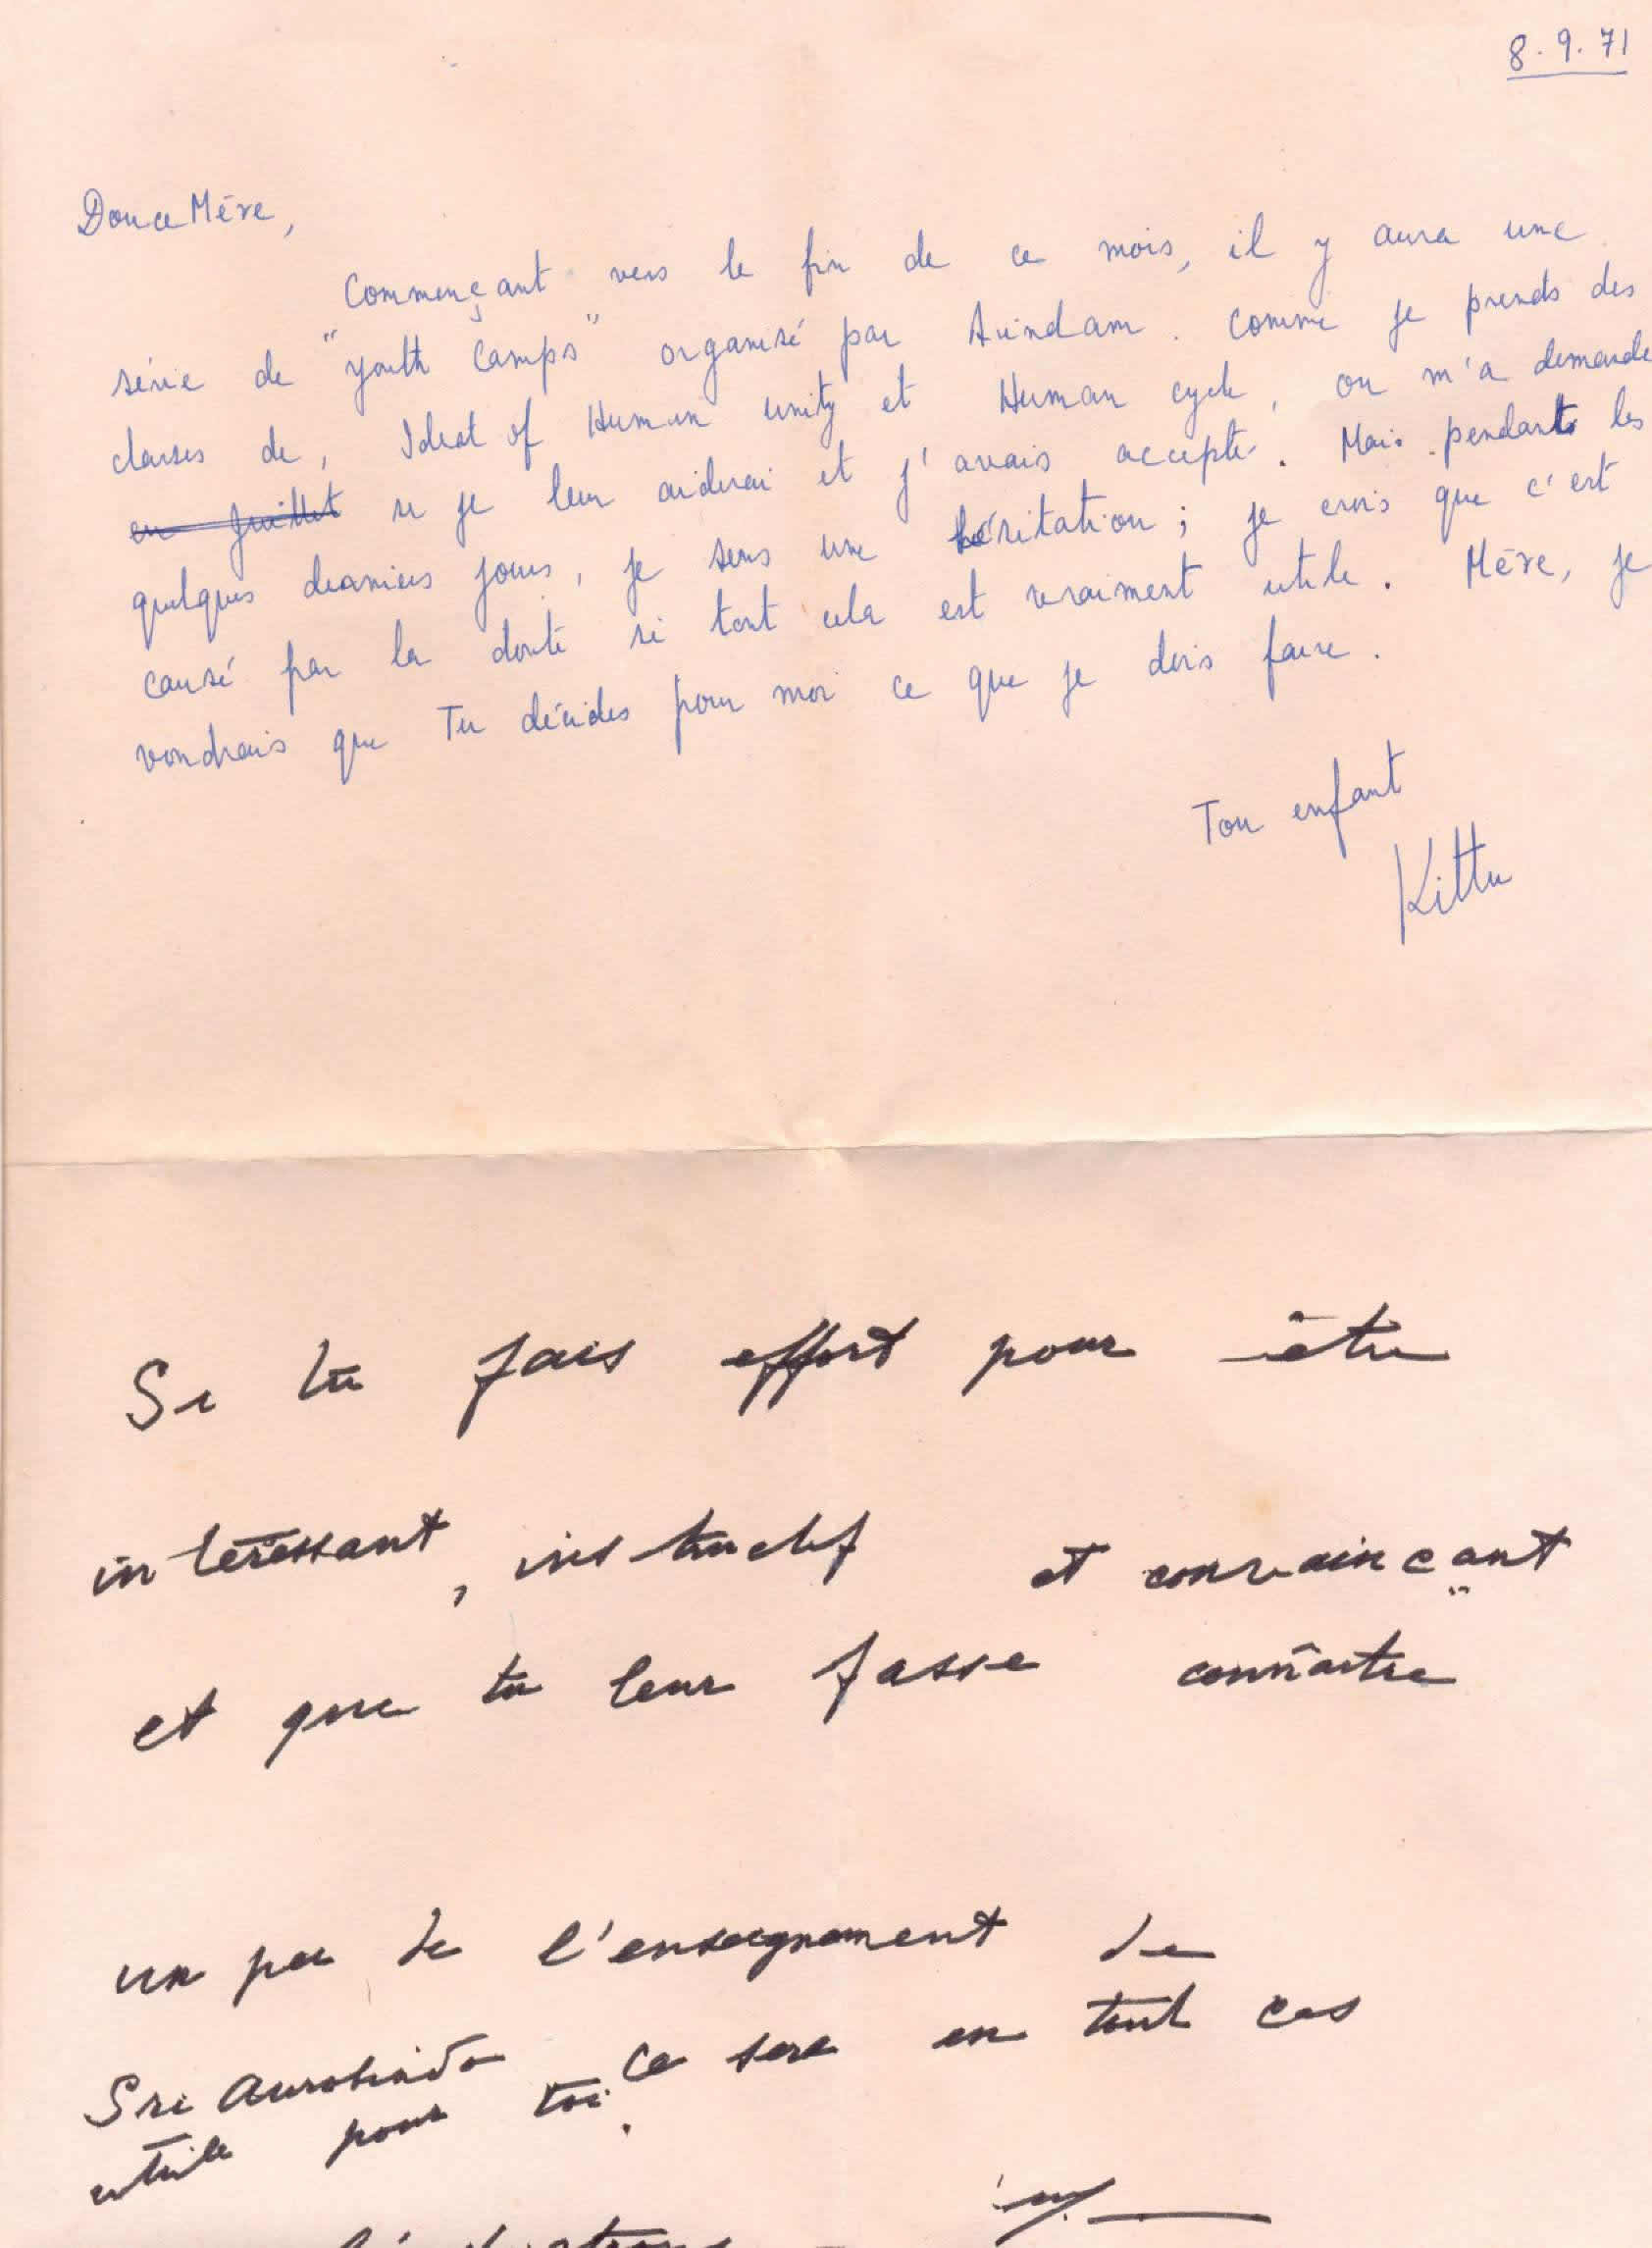 8.9.71
Douce Mère,
Commençant vers le fin de ce mois, il y aura une
série de "Youth Camps" organisé par Arindam. Comme je prends des
classes de, Ideal of Human Unity et Human cycle, on m'a demandé
en Juillet si je leur aiderai et j'avais accepté. Mais pendant les
quelques derniers jours, je sens une hésitation; je crois que c'est
causé par la doute si tout cela est vraiment utile. Mère, je
voudrais que Tu décides pour moi ce que je dois faire.
Ton enfant
Kittu
Si tu fais effort pour être
intéressant, instructif et convainçant
et que tu leur fasse connaître
un peu de l'enseignement de
Sri Aurobindo ce sera en tout cas
utile pour toi.